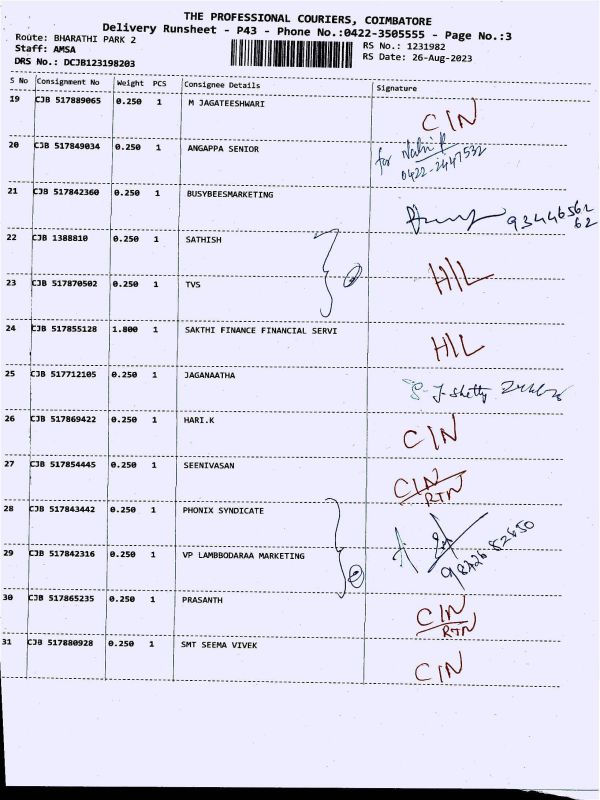 THE PROFESSIONAL COURIERS, COIMBATORE
Delivery Runsheet - P43 - Phone No.:0422-3505555 - Page No.:3
Route: BHARATHI PARK 2
RS No.: 1231982
Staff: AMSA
RS Date: 26-Aug-2023
DRS No.: DCJB123198203
S No Consignment No Weight PCS Consignee Details Signature
19 CJB 517889065 0.250 1 M JAGATEESHWARI CIN
20 CJB 517849034 0.250 1 ANGAPPA SENIOR for
0422-2447532
21 CJB 517842360 0.250 1 BUSYBEESMARKETING 93446562
62
22 CJB 1388810 0.250 1 SATHISH
23 CJB 517870502 0.250 1 TVS H/L
24 CJB 517855128 1.800 1 SAKTHI FINANCE FINANCIAL SERVI H/L
25 CJB 517712105 0.250 1 JAGANAATHA J-Shetty
26 CJB 517869422 0.250 1 HARI.K CIN
27 CJB 517854445 0.250 1 SEENIVASAN CIN
RTN
28 CJB 517843442 0.250 1 PHONIX SYNDICATE
29 CJB 517842316 0.250 1 VP LAMBBODARAA MARKETING
30 CJB 517865235 0.250 1 PRASANTH CIN
RTN
31 CJB 517880928 0.250 1 SMT SEEMA VIVEK CIN